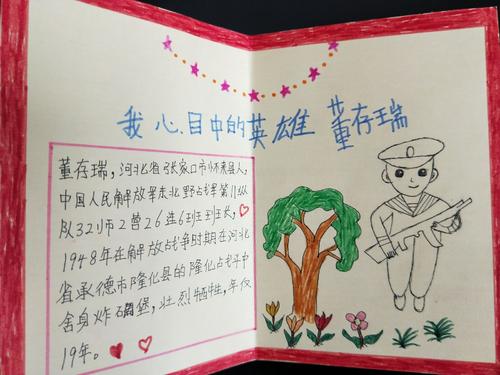 我心目中的英雄 董存瑞
董存瑞，河北省张家口市怀来县人，
中国人民解放军东北野战军第11纵
队32师2营26连6班班长，
1948年在解放战争时期在河北
省承德市隆化县的隆化占战斗中
舍身炸碉堡，壮烈牺牲，年仅
19年。